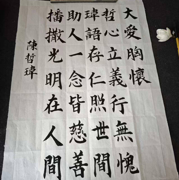 大愛胸懷
哲心立義行無愧
瑋語存仁照世間
助人一念皆慈善
播撒光明在人間
陳哲瑋